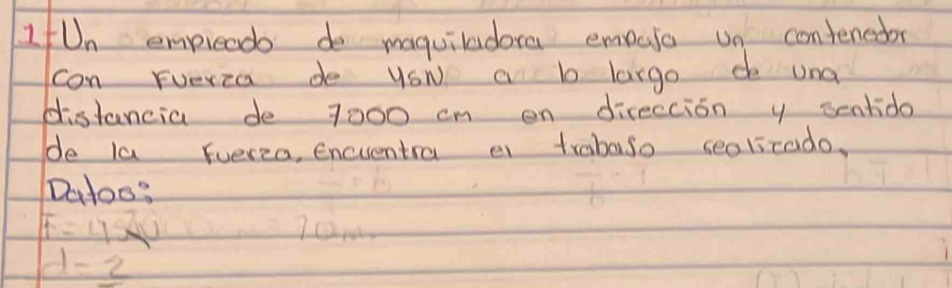 1- Un empleado de maquiladora empuja un contenedor
con Fuerza de 45N a lo largo de una
distancia de 7000 cm en dirección y sentido
de la fuerza, Encuentra el trabajo realizado.
Datos:
F=
d=